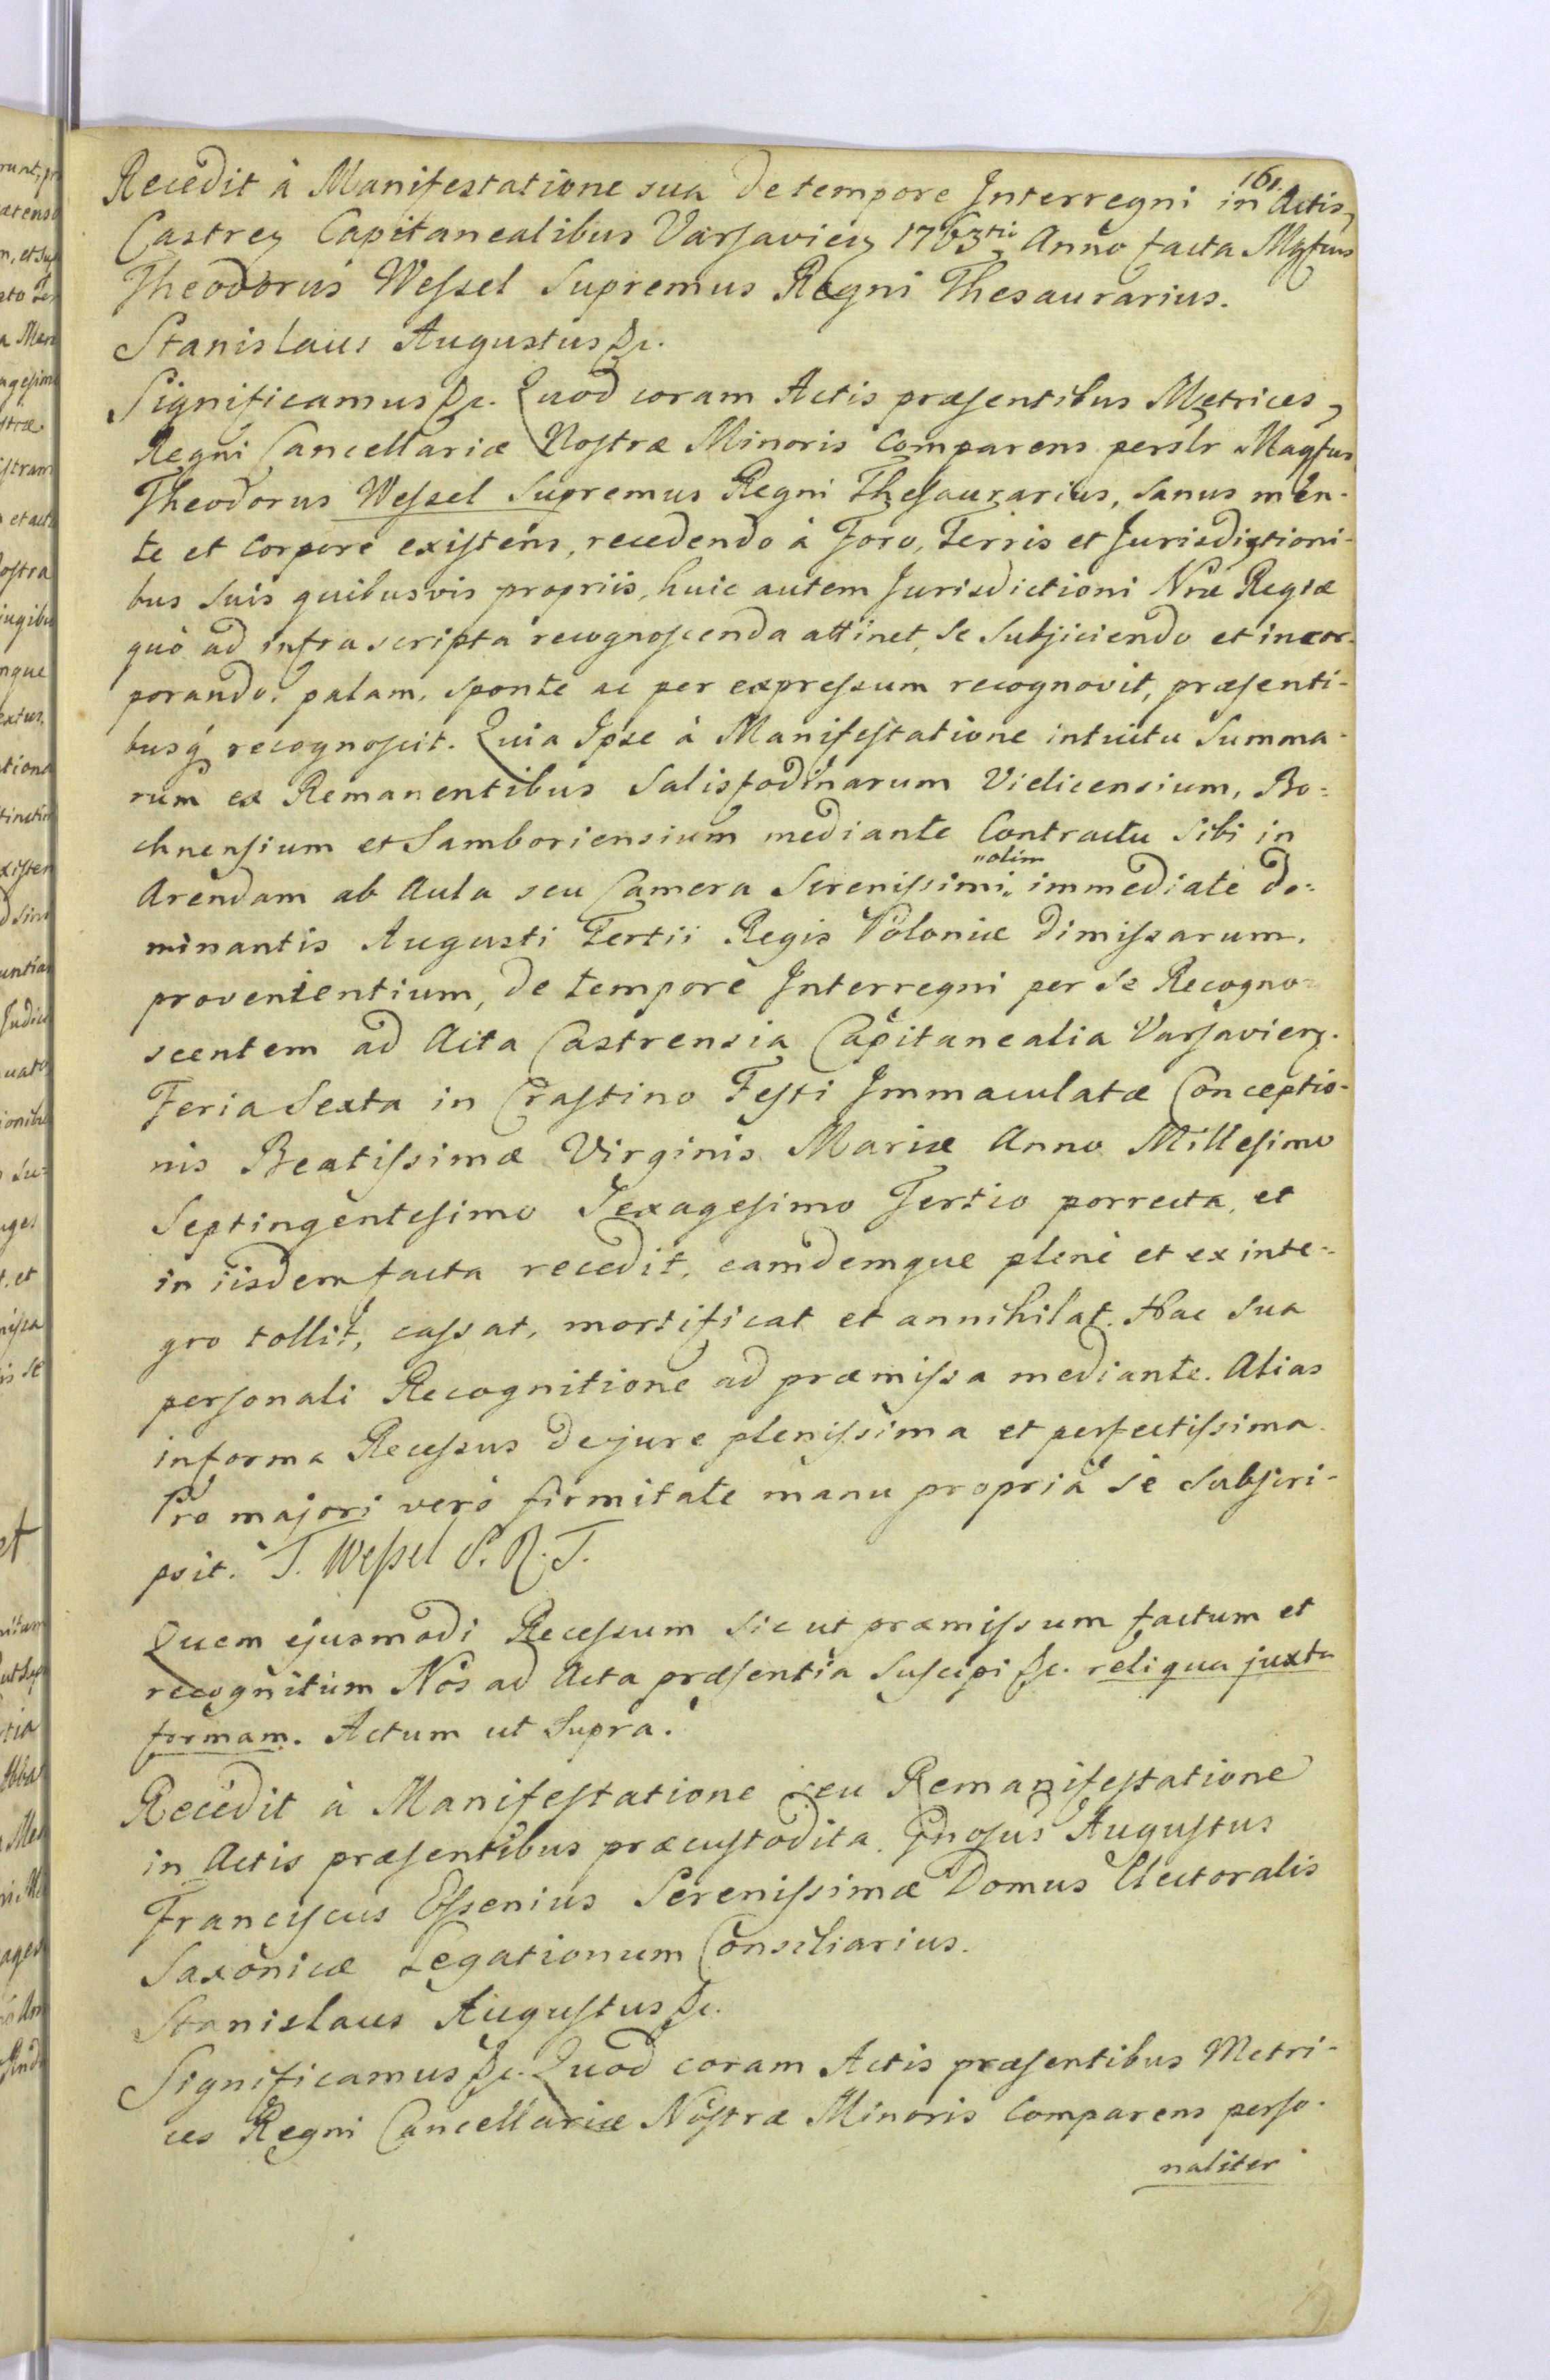 161.
Recedit à Manifestatione sua de tempore Interregni in Actis
Castren Capitanealibus Varsavien 1763tii Anno facta Mgfcus
Theodorus Weſsel Supremus Regni Thesaurarius.
Stanislaus Augustus &c.
Significamus &c. Quod coram Actis præſentibus Metrices
Regni Cancellariæ Noſtræ Minoris Comparens perslr Magfcus
Theodorus Weſsel Supremus Regni Theſaurarius, sanus men-
te et Corpore exiſtens, recedendo à Foro, Terris et Jurisdictioni-
bus suis quibusvis propriis, huic autem Jurisdictioni Nræ Regiæ
quò ad infra scripta recognoſcenda attinet, se Subjiciendo et incor-
porando, palam, sponte ac per expreſsum recognovit, præſenti-
busq́ recognoſcit. Quia Ipse à Manifeſtatione intuitu Summa-
rum ex Remanentibus Salisfodinarum Vielicensium, Bo=
chnenſium et Samboriensium mediante Contractu sibi in
Arendam ab Aula seu Camera Sereniſsimi "olim immediatè do=
minantis Augusti Tertii Regis Poloniæ dimiſsarum,
provenientium, de tempore Interregni per se Recogno=
scentem ad Acta Castrensia Capitanealia Varſavien.
Feria Sexta in Craſtino Feſti Immaculatæ Conceptio-
nis Beatiſsimæ Virginis Mariæ Anno Milleſimo
Septingenteſimo Sexageſimo Tertio porrecta, et
in iisdem facta recedit, eamdemque plenè et ex inte-
gro tollit, caſsat, mortificat et annihilat. Hac sua
perſonali Recognitione ad præmiſsa mediante. Alias
in forma Receſsus de jure pleniſsima et perfectiſsima.
Pro majori verò firmitate manu propria se Subſcri-
psit. T. Weſsel S. R. T.
Quem ejusmodi Receſsum sic ut præmiſsum factum et
recognitum Nos ad Acta præſentia Suſcipi &c. reliqua juxta
formam. Actum ut Supra.
Recedit à Manifeſtatione seu Remanifeſtatione
in Actis præſentibus præcuſtodita Gnoſus Auguſtus
Franciſcus Eſsenius Sereniſsimæ Domus Electoralis
Saxonicæ Legationum Consiliarius.
Stanislaus Auguſtus &c.
Significamus &c. Quod coram Actis præſentibus Metri-
ces Regni Cancellariæ Noſtræ Minoris Comparens perſo-
naliter